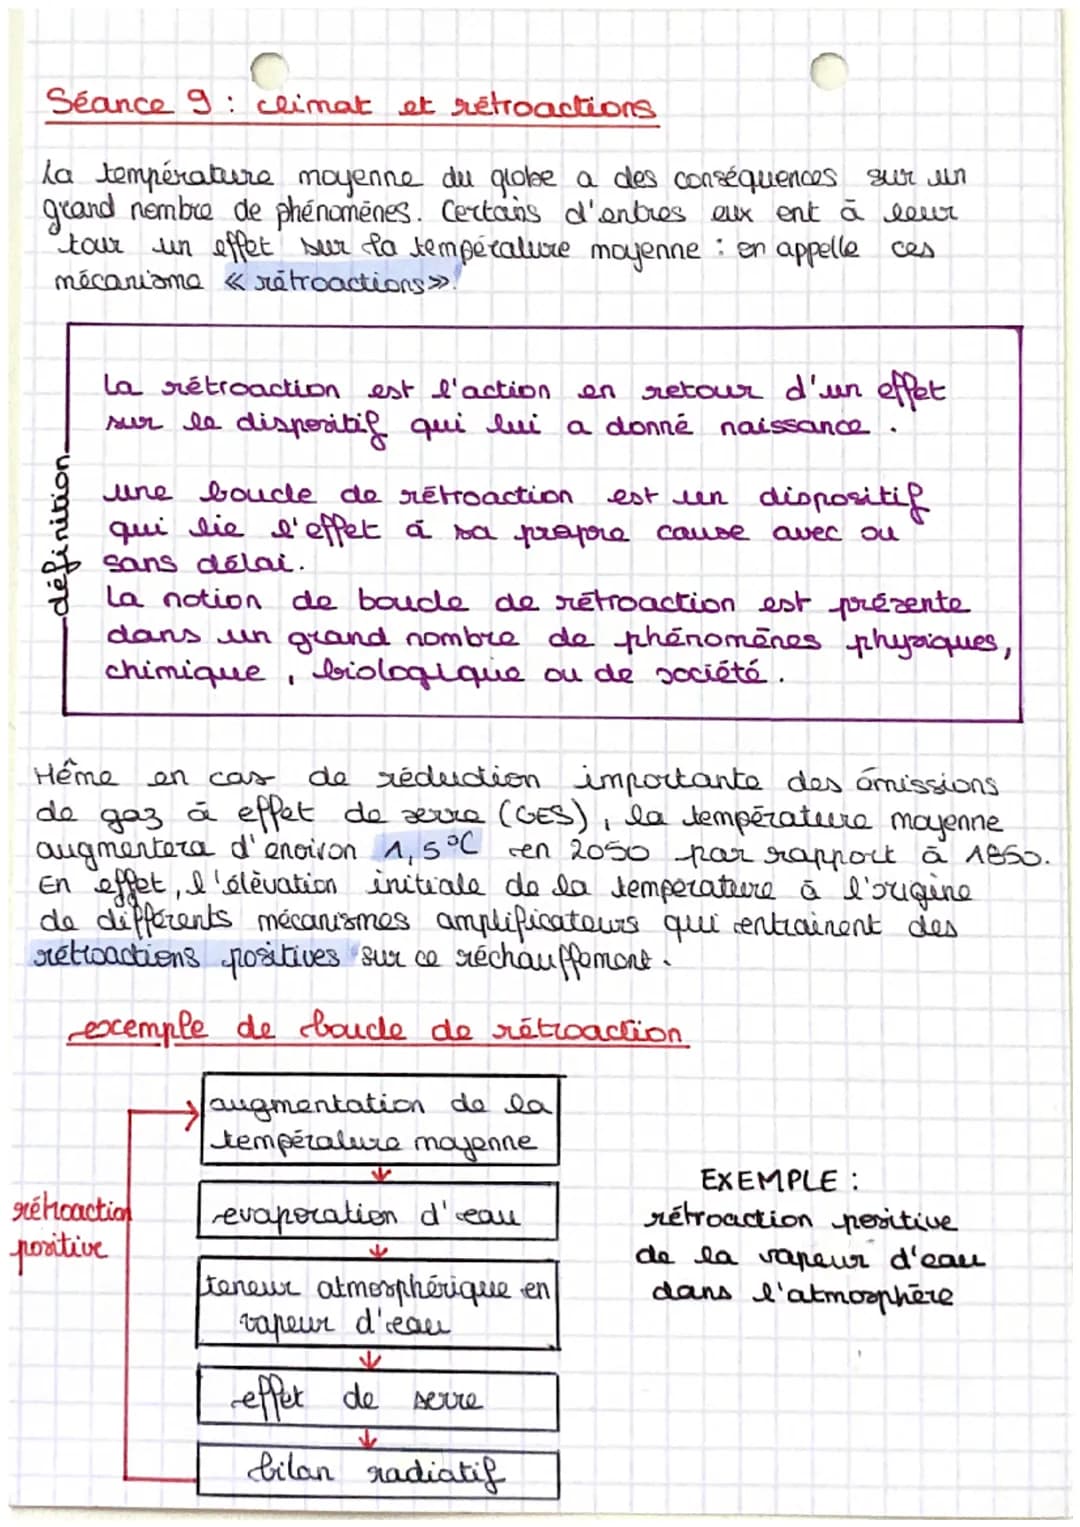 Séance 9 : climat et rétroactions
La température moyenne du globe a des conséquences sur un
grand nombre de phénomènes. Certains d'entres eux ont à leur
tour un effet sur la température moyenne : on appelle ces
mécanisme « rétroactions ».
définition
La rétroaction est l'action en retour d'un effet
sur le dispositif qui lui a donné naissance.
une boucle de rétroaction est un dispositif
qui lie l'effet à sa propre cause avec ou
sans délai.
La notion de boucle de rétroaction est présente
dans un grand nombre de phénomènes physiques,
chimique, biologique ou de société.
Même en cas de réduction importante des émissions
de gaz à effet de serre (GES), la température moyenne
augmentera d'environ 1,5°C en 2050 par rapport à 1850.
En effet, l'élèvation initiale de la température à l'origine
de différents mécanismes amplificateurs qui entrainent des
rétroactions positives sur ce réchauffement.
exemple de boucle de rétroaction
augmentation de la
température moyenne
evaporation d'eau
teneur atmosphérique en
vapeur d'eau
effet de serre
bilan radiatif
rétroaction
positive
EXEMPLE :
rétroaction positive
de la vapeur d'eau
dans l'atmosphère